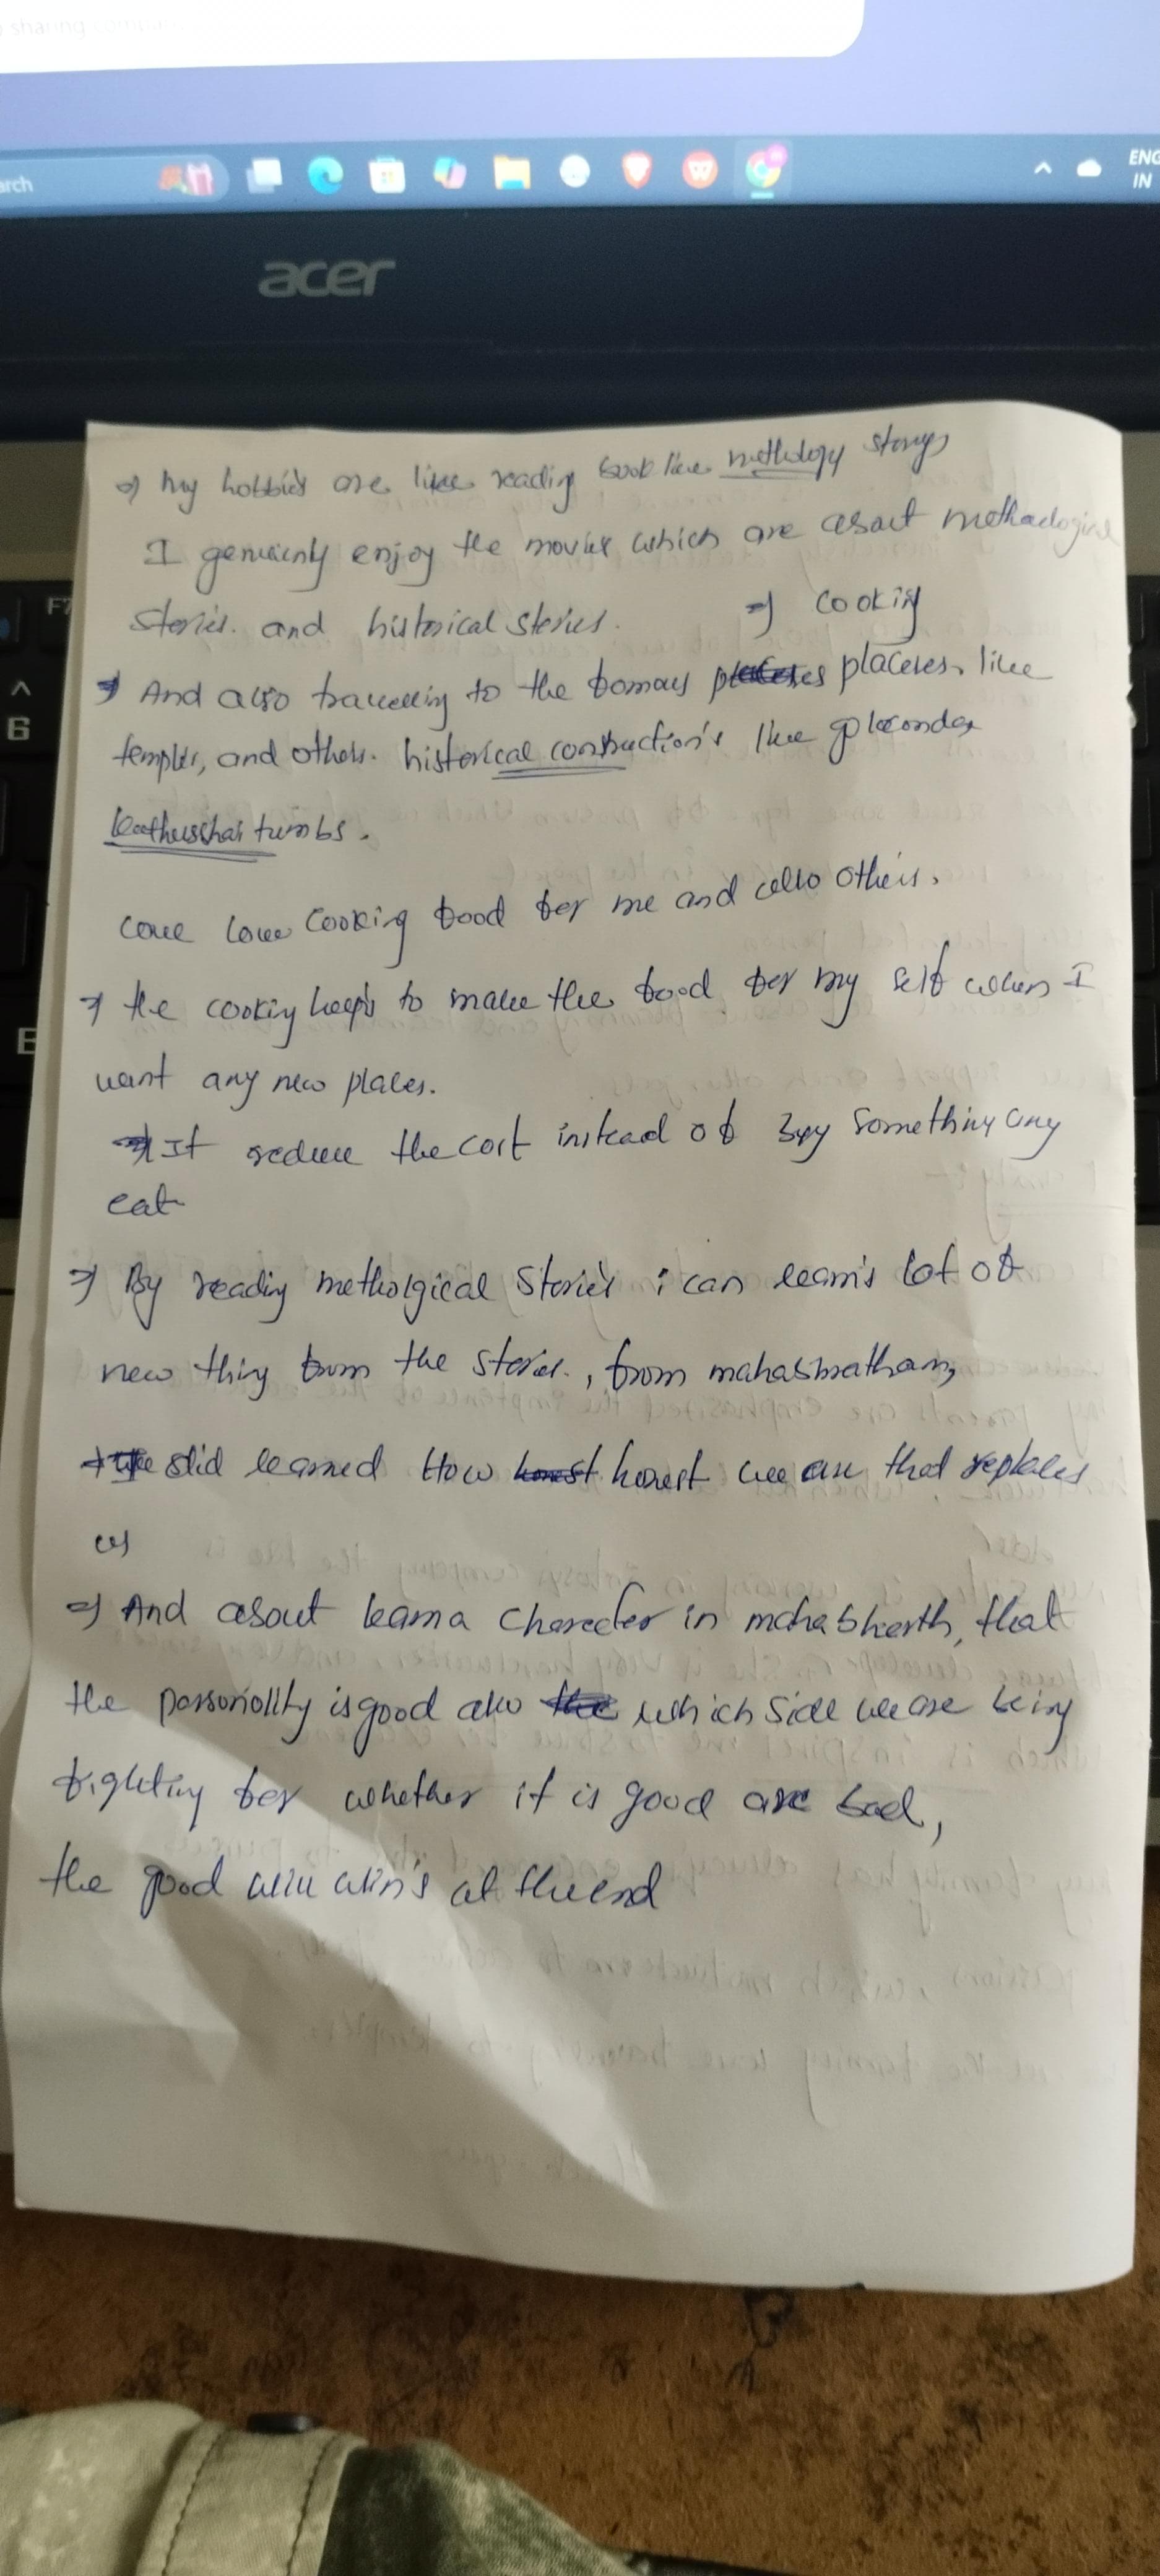 sharing
arch
ENG
IN
acer
F7
6
E
⇒ My hobbies are like reading book like methology storys
I genuienly enjoy the movies which are about methodogical
stories. and historical stories. ⇒ cooking
⇒ And also travelling to the famous placeses, like
temples, and others. historical contruction's like golconda
tumbs.
love cooking food for me and also others.
⇒ the cooking helps to make the food for my self when I
want any new places.
⇒ It reduce the cost instead of buy something any
eat
⇒ By reading metholgical Stories i can learn's lot of
new thing from the stories., from mahabhratham,
learned How honest we are that replales
us
⇒ And about karna charecter in mahabherth, that
the personollity is good also which side we are being
fighting for whether it is good are bad,
the good will win's at the end